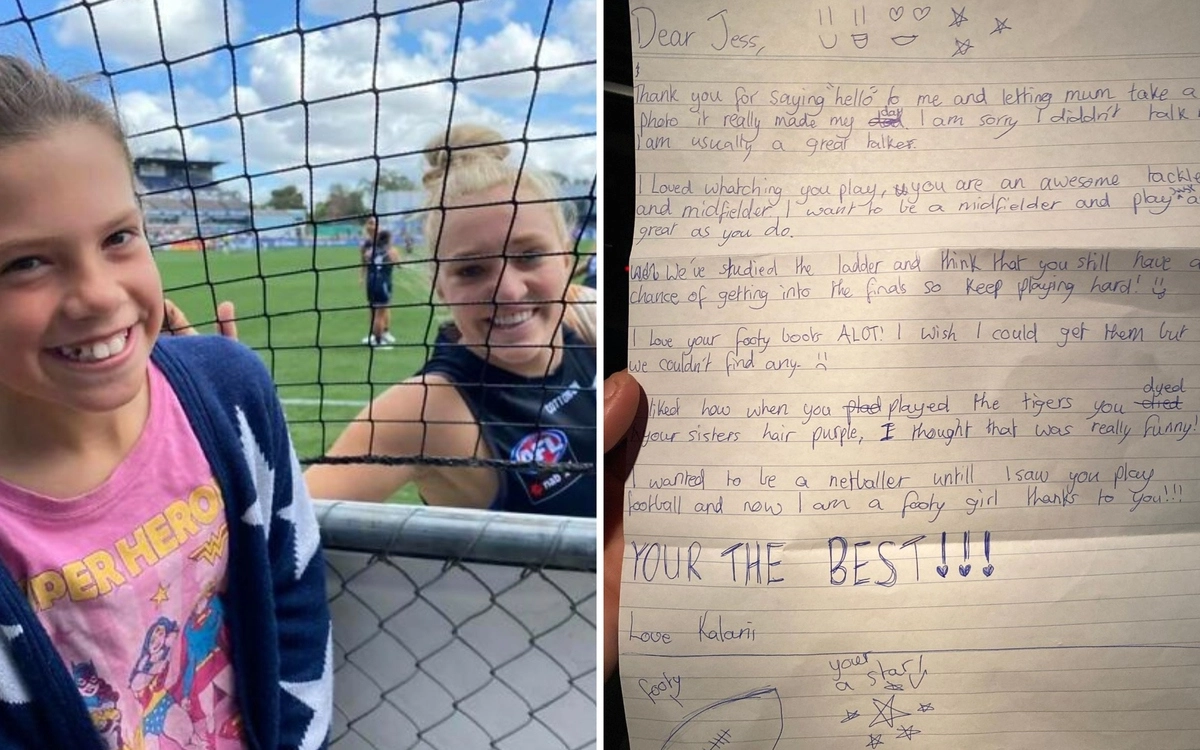 SUPERHERO
COTTON
AFL
nab
Dear Jess,
Thank you for saying "hello" to me and letting mum take a
photo it really made my day I am sorry I diddn't talk
I am usually a great talker.
I Loved whatching you play, you are an awesome tackle
and midfielder, I want to be a midfielder and play as
great as you do.
We've studied the ladder and think that you still have a
chance of getting into the finals so keep playing hard!
I love your footy boots ALOT! I wish I could get them but
we couldn't find any.
I liked how when you played the tigers you dyed
your sisters hair purple, I thought that was really funny!
I wanted to be a netballer untill I saw you play
football and now I am a footy girl thanks to you!!!
YOUR THE BEST!!!
Love Kalani
footy
your
a star